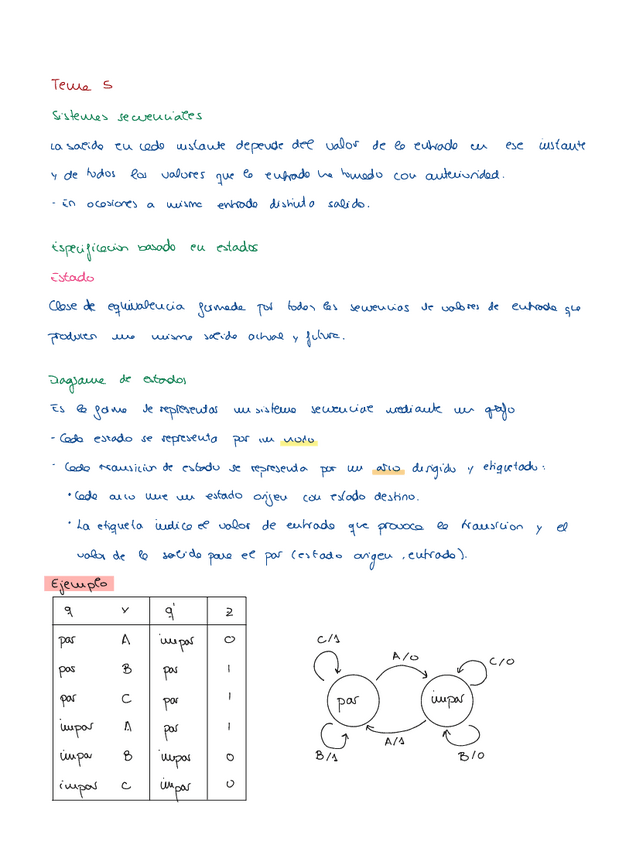 Tema 5
Sistemas secuenciales
La salida en cada instante depende del valor de la entrada en ese instante
y de todos los valores que la entrada ha tomado con anterioridad.
- En ocasiones a misma entrada distinta salida.
Especificacion basada en estados
Estado
Clase de equivalencia formada por todas las secuencias de valores de entrada que
producen una misma salida actual y futura.
Diagrama de estados
Es la forma de representar un sistema secuencial mediante un grafo
- Cada estado se representa por un nodo
- Cada transicion de estado se representa por un arco dirigido y etiquetado:
• Cada arco une un estado origen con estado destino.
• La etiqueta indica el valor de entrada que provoca la transicion y el
valor de la salida para el par (estado origen, entrada).
Ejemplo
q x q' z
par A impar 0
par B par 1
par C par 1
impar A par 1
impar B impar 0
impar C impar 0
C/1
A/0
C/0
par impar
A/1
B/1 B/0